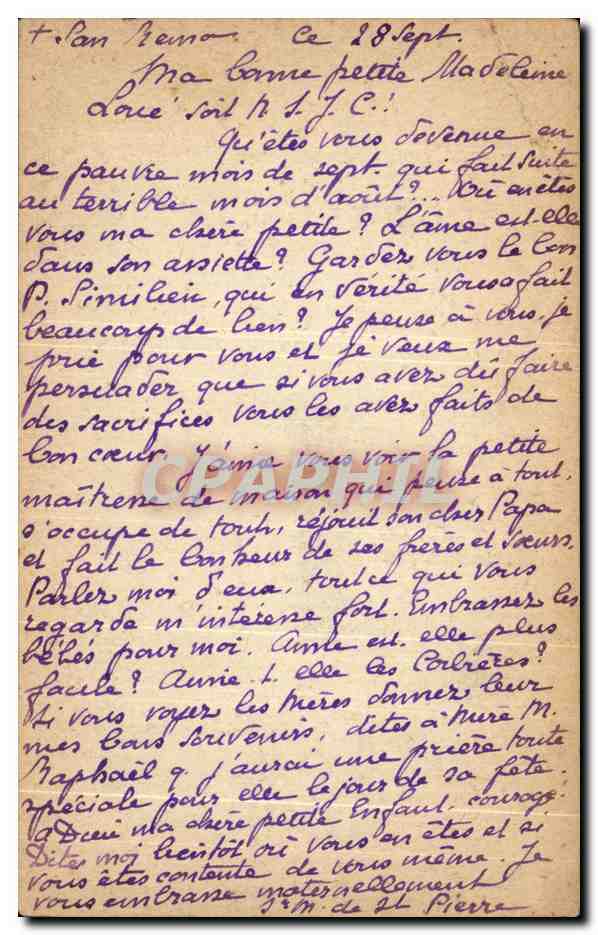 + San Remo. Ce 28 Sept.
Ma bonne petite Madeleine
Loué soit N. S. J. C.!
Qu'êtes vous devenue en
ce pauvre mois de sept. qui fait suite
au terrible mois d'août?... Où en êtes
vous ma chère petite? L'âme est-elle
dans son assiette? Gardez vous le bon
P. Similien, qui en vérité vous a fait
beaucoup de bien? Je pense à vous, je
prie pour vous et je veux me
persuader que si vous avez dû faire
des sacrifices vous les avez faits de
bon cœur. J'aime vous voir la petite
maîtresse de maison qui pense à tout,
s'occupe de tout, réjouit son cher Papa
et fait le bonheur de ses frères et sœurs.
Parlez moi d'eux, tout ce qui vous
regarde m'intéresse fort. Embrassez les
bébés pour moi. Anne est-elle plus
facile? Aime-t-elle les Corbières?
Si vous voyez les Mères donnez leur
mes bons souvenirs, dites à Mère M.
Raphaël q. j'aurai une prière toute
spéciale pour elle le jour de sa fête.
à Dieu ma chère petite Enfant, courage!
Dites moi bientôt où vous en êtes et si
vous êtes contente de vous même. Je
vous embrasse maternellement
Sr M. de St Pierre
CPAPHIL